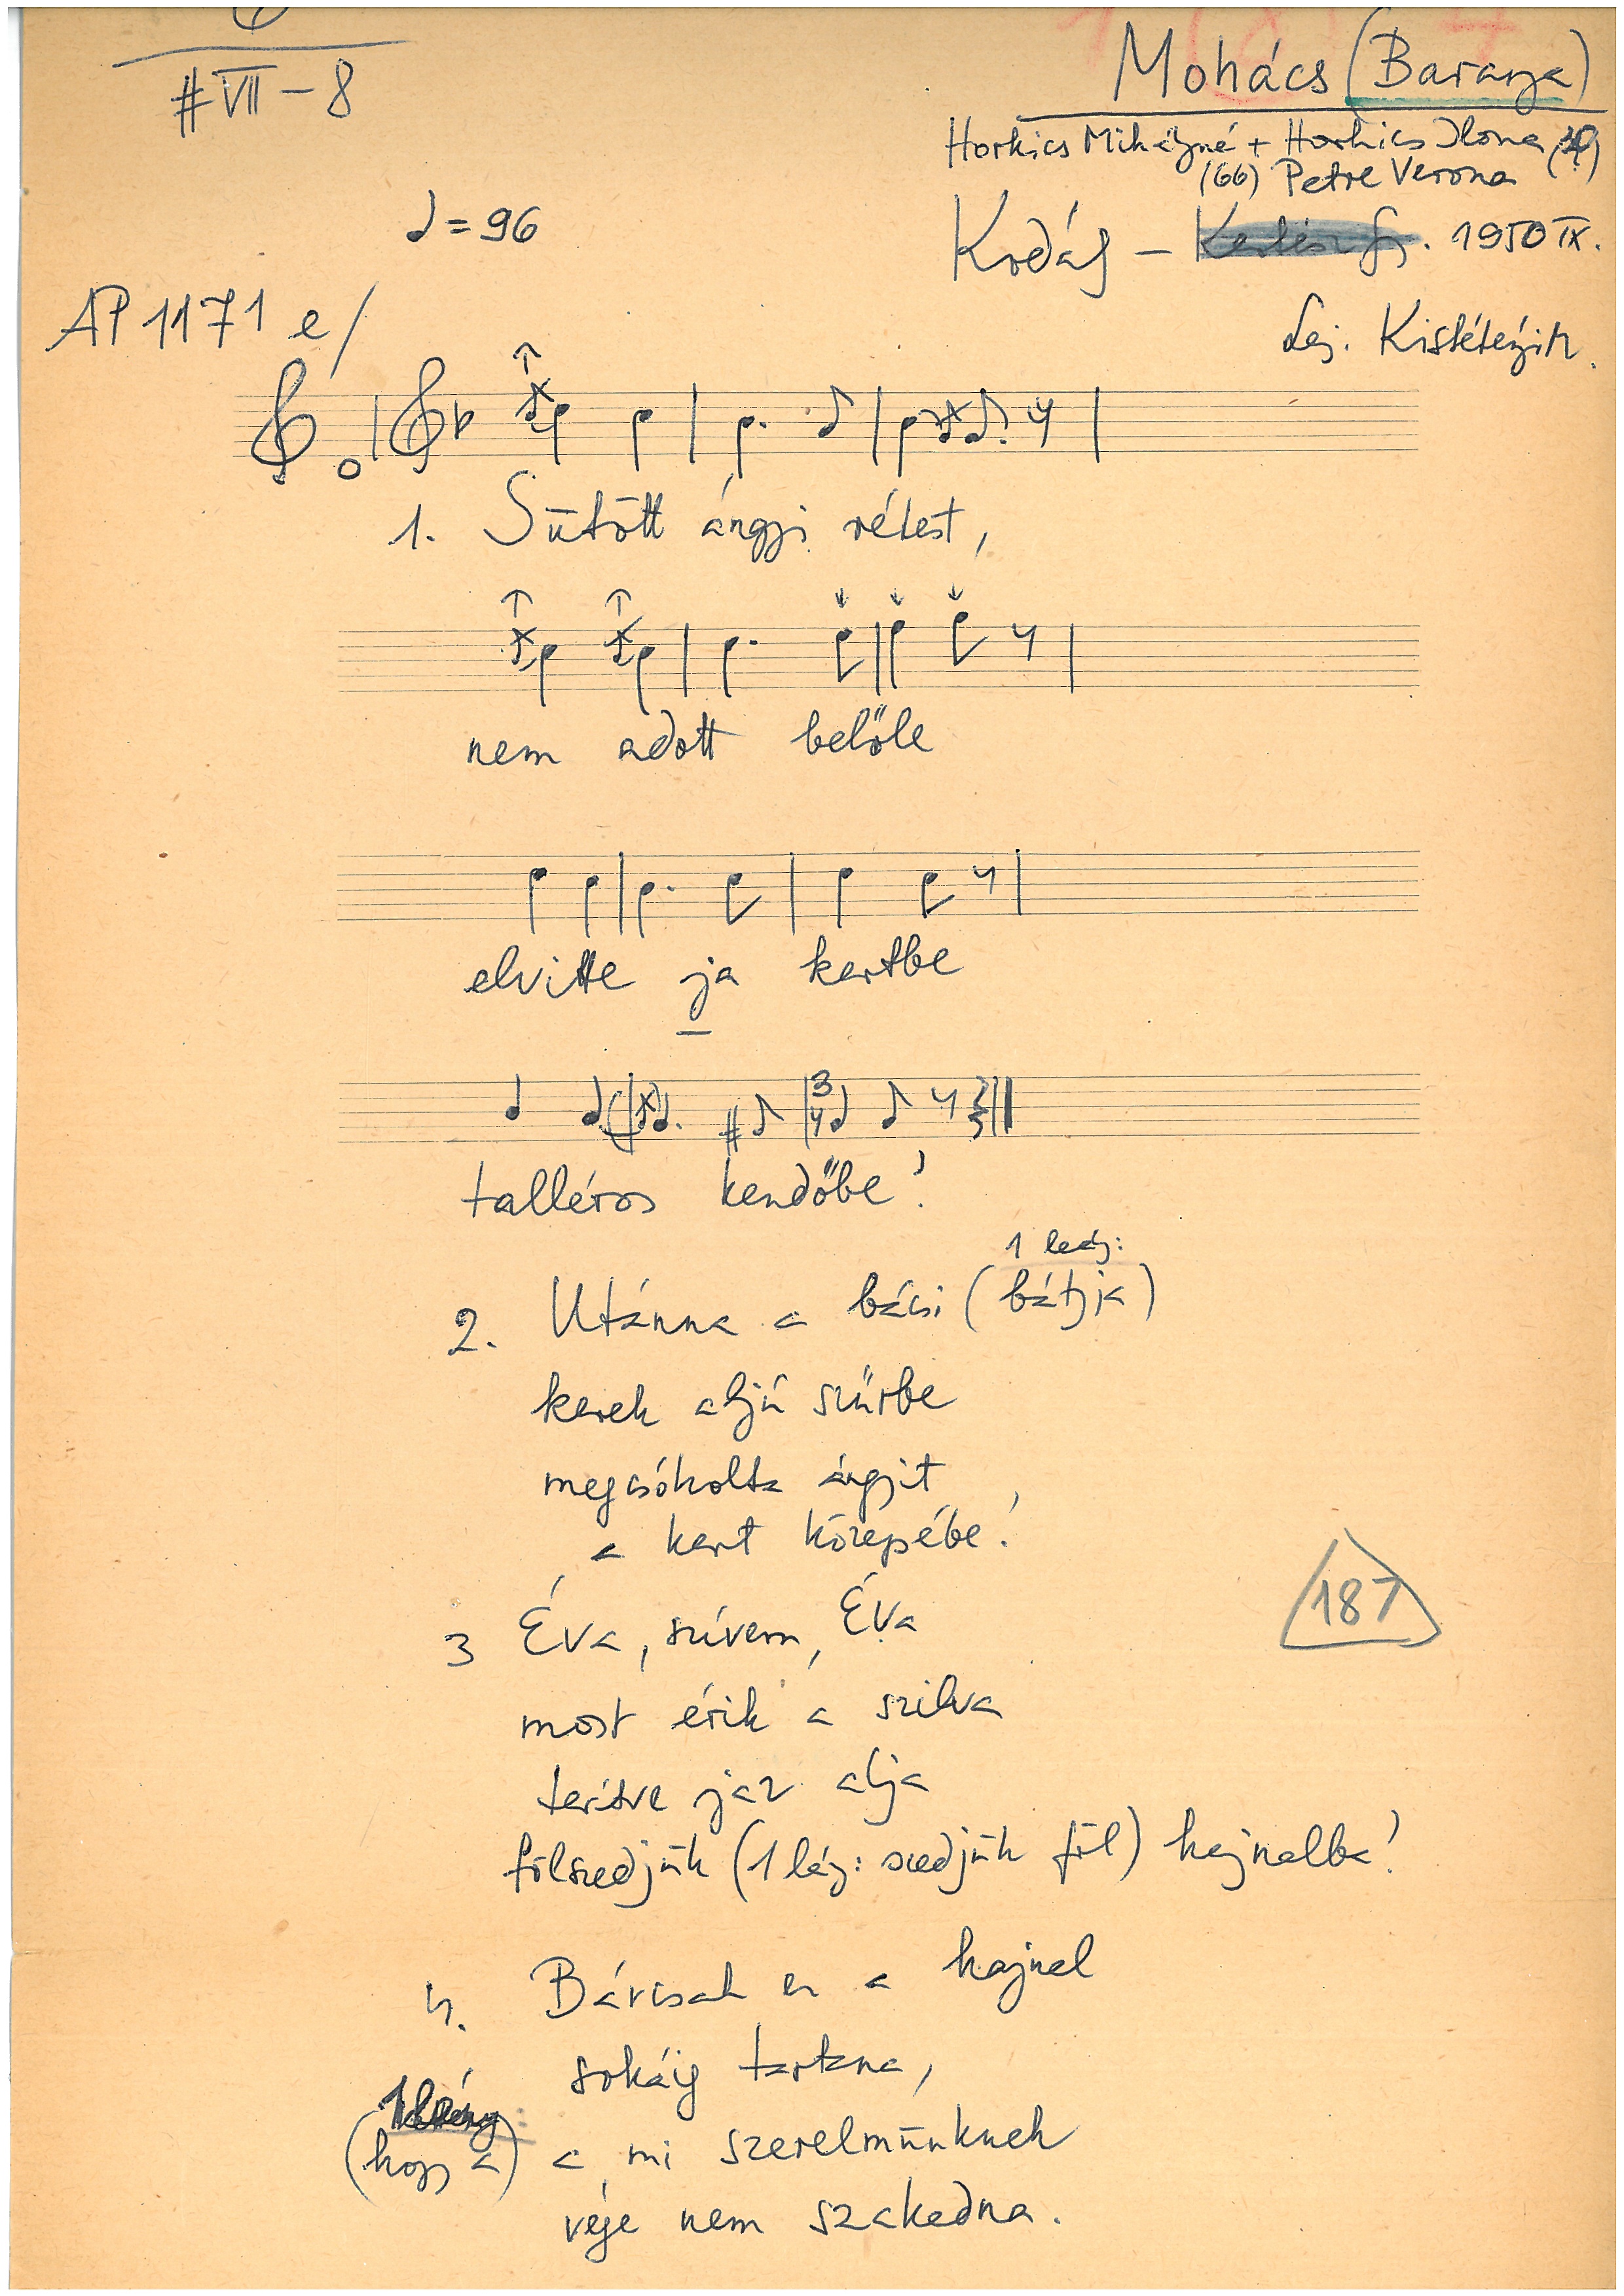 # VII – 8
Mohács (Baranya)
Horkics Mihályné + Horkics Ilona (19)
(66) Petre Verona
♩ = 96
Kodály – 1950 IX.
AP 1171 e/
Lej.
1. Sütött ángyi rétest,
nem adott belőle
elvitte ja kertbe
3
4
talléros kendőbe!
1 leány:
2. Utánna a bácsi (bátyja)
kerek aljú szűrbe
megcsókolta ángyit
a kert közepébe!
3 Éva, szívem, Éva
most érik a szilva
terítve jaz alja
fölszedjük (1 lány: szedjük föl) hajnalba!
187
4. Bárcsak ez a hajnal
sokáig tartana,
1 leány:
(hogy a) a mi szerelmünknek
vége nem szakadna.